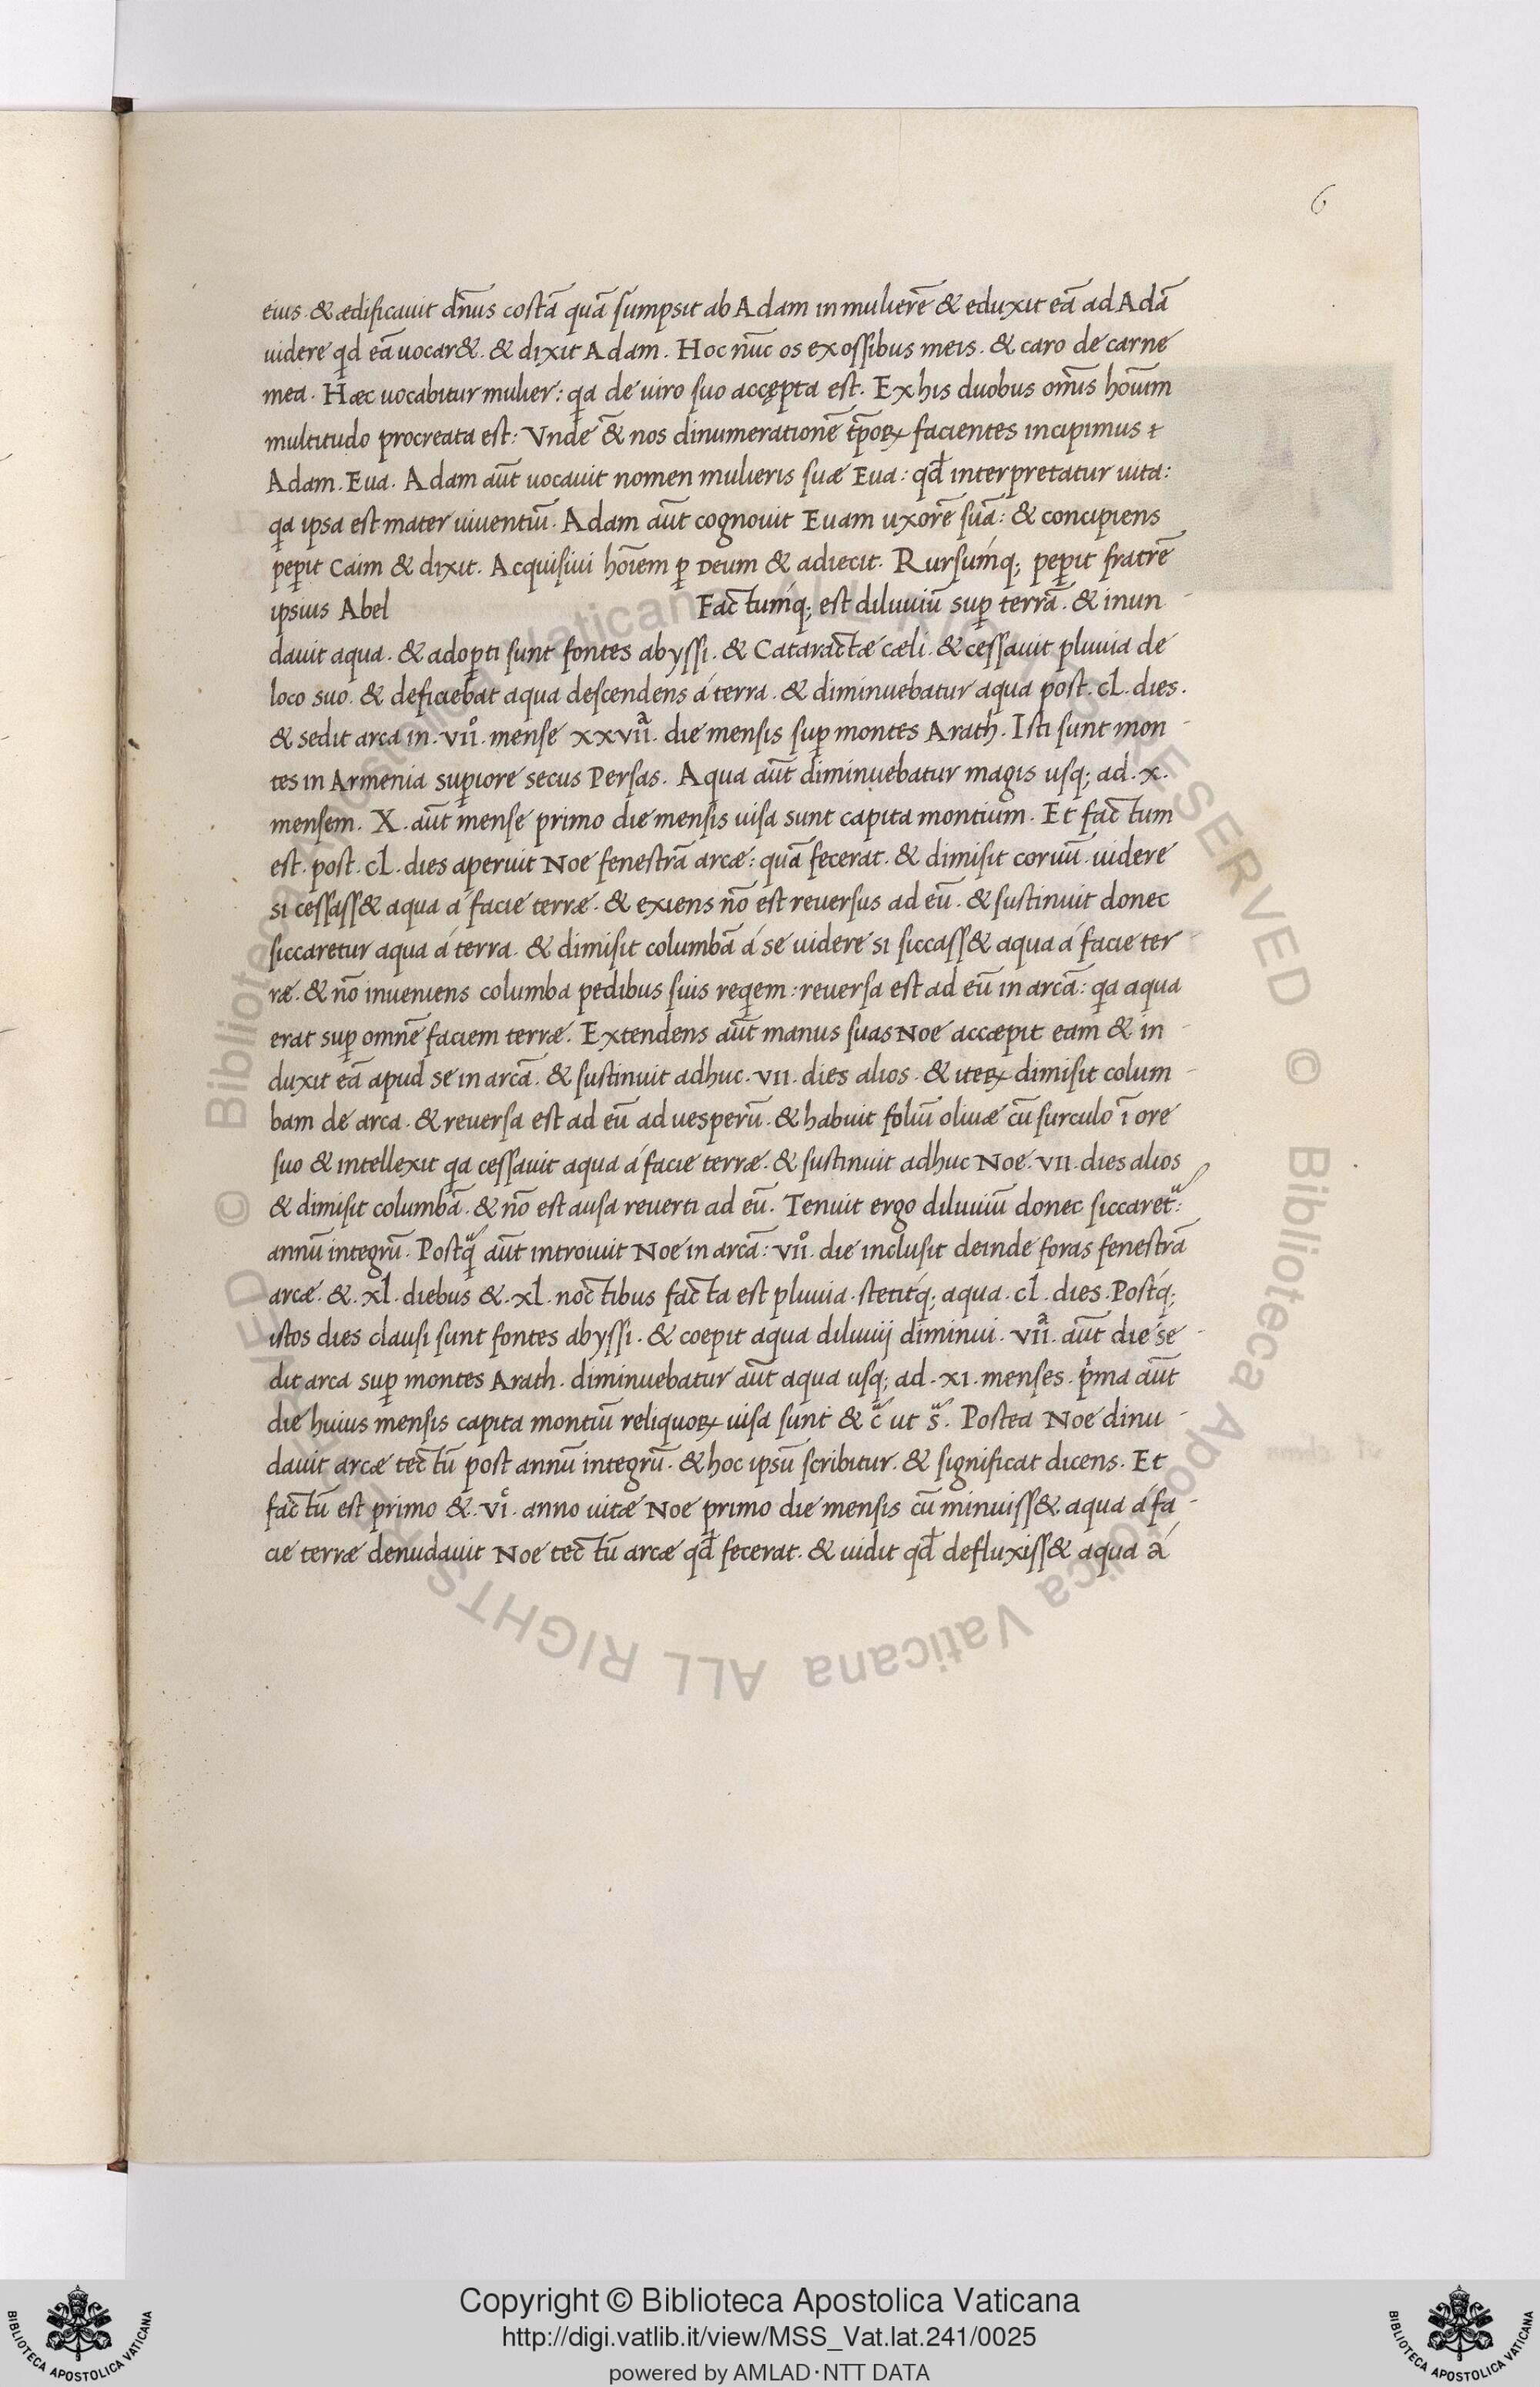 6
eius. & ædificauit dn̄us costā quā sumpsit ab Adam in mulierē & eduxit eā ad Adā
uidere qd eā uocar&. & dixit Adam. Hoc nūc os ex ossibus meis. & caro de carne
mea. Hæc uocabitur mulier: qa de uiro suo accępta est. Ex his duobus om̄is hoīum
multitudo procreata est: Vnde & nos dinumerationē tp̄oꝝ facientes incipimus
Adam. Eua. Adam aūt uocauit nomen mulieris suæ Eua: qđ interpretatur uita:
qa ipsa est mater uiuentiū. Adam aūt cognouit Euam uxorē suā: & concipiens
peꝑit Caim & dixit. Acquisiui hoīem ꝑ Deum & adiecit. Rursumq; peꝑit fratrē
ipsius Abel Factumq; est diluuiū suꝑ terrā. & inun
dauit aqua. & adoꝑti sunt fontes abyssi. & Cataractæ cæli. & cessauit pluuia de
loco suo. & deficiebat aqua descendens á terra. & diminuebatur aqua post. cl. dies.
& sedit arca in. vııº. mense xxvııª. die mensis suꝑ montes Arath. Isti sunt mon
tes in Armenia suꝑiore secus Persas. Aqua aūt diminuebatur magis usq; ad. x.
mensem. X. aūt mense primo die mensis uisa sunt capita montium. Et factum
est. post. cl. dies aperuit Noe fenestrā arcæ: quā fecerat. & dimisit coruū. uidere
si cessass& aqua á facie terræ. & exiens nō est reuersus ad eū. & sustinuit donec
siccaretur aqua á terra. & dimisit columbā á se uidere si siccass& aqua á facie ter
ræ. & nō inueniens columba pedibus suis reqem: reuersa est ad eū in arcā: qa aqua
erat suꝑ omnē faciem terræ. Extendens aūt manus suas Noe accæpit eam & in
duxit eā apud se in arcā. & sustinuit adhuc. vıı. dies alios. & iteꝝ dimisit colum
bam de arca. & reuersa est ad eū ad uesperū. & habuit foliū oliuæ cū surculo ī ore
suo & intellexit qa cessauit aqua á facie terræ. & sustinuit adhuc Noe. vıı. dies alios
& dimisit columbā. & nō est ausa reuerti ad eū. Tenuit ergo diluuiū donec siccaret᷑:
annū integrū. Postq̃ aūt introiuit Noe in arcā: vııº. die inclusit deinde foras fenestrā
arcæ. & xl. diebus & xl. noctibus facta est pluuia. stetitq; aqua. cl. dies. Postq;
istos dies clausi sunt fontes abyssi. & coepit aqua diluuij diminui. vııª. aūt die se
dit arca suꝑ montes Arath. diminuebatur aūt aqua usq; ad. xı. menses. pͥma aūt
die huius mensis capita montiū reliquoꝝ uisa sunt & c̃ ut s̃. Postea Noe dinu
dauit arcæ tectū post annū integrū. & hoc ipsū scribitur. & significat dicens. Et
factū est primo & vıº. anno uitæ Noe primo die mensis cū minuiss& aqua á fa
cie terræ denudauit Noe tectū arcæ qđ fecerat. & uidit qđ defluxiss& aqua á
© Biblioteca Apostolica Vaticana ALL RIGHTS RESERVED © Biblioteca Apostolica Vaticana ALL RIGHTS RESERVED
Copyright © Biblioteca Apostolica Vaticana
http://digi.vatlib.it/view/MSS_Vat.lat.241/0025
powered by AMLAD·NTT DATA
BIBLIOTECA APOSTOLICA VATICANA
BIBLIOTECA APOSTOLICA VATICANA